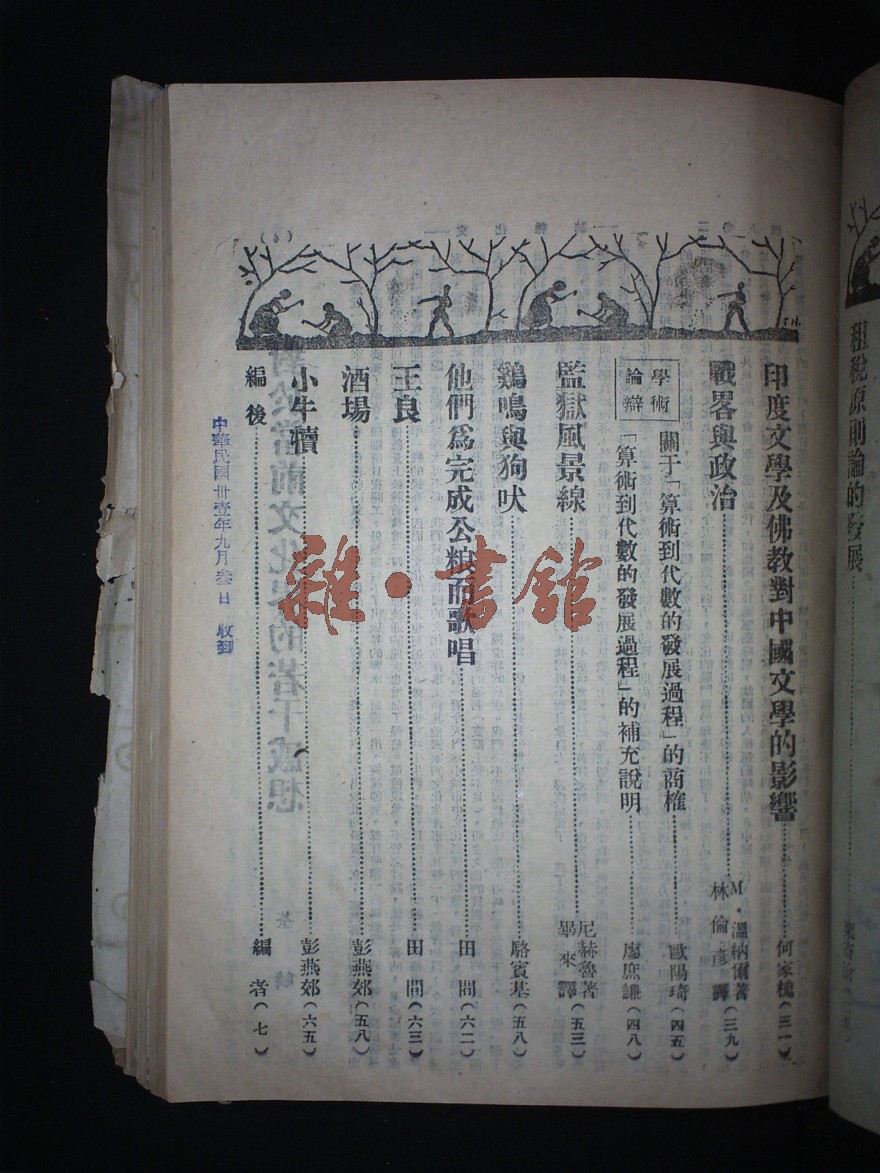 租稅原則論的發展
印度文學及佛敎對中國文學的影響 何家槐(三一)
戰畧與政治 M·溫納爾著 林倫彥譯(三九)
學術論辯
關于「算術到代數的發展過程」的商榷 歐陽琦(四五)
「算術到代數的發展過程」的補充說明 廖庶謙(四八)
監獄風景線 尼赫魯著 畢來譯(五三)
鷄鳴與狗吠 駱賓基(五八)
他們爲完成公粮而歌唱 田間(六二)
王良 田間(六三)
酒場 彭燕郊(五八)
小牛犢 彭燕郊(六五)
編後 編者(七)
中華民國卅壹年九月叁日 收到
雜·書館